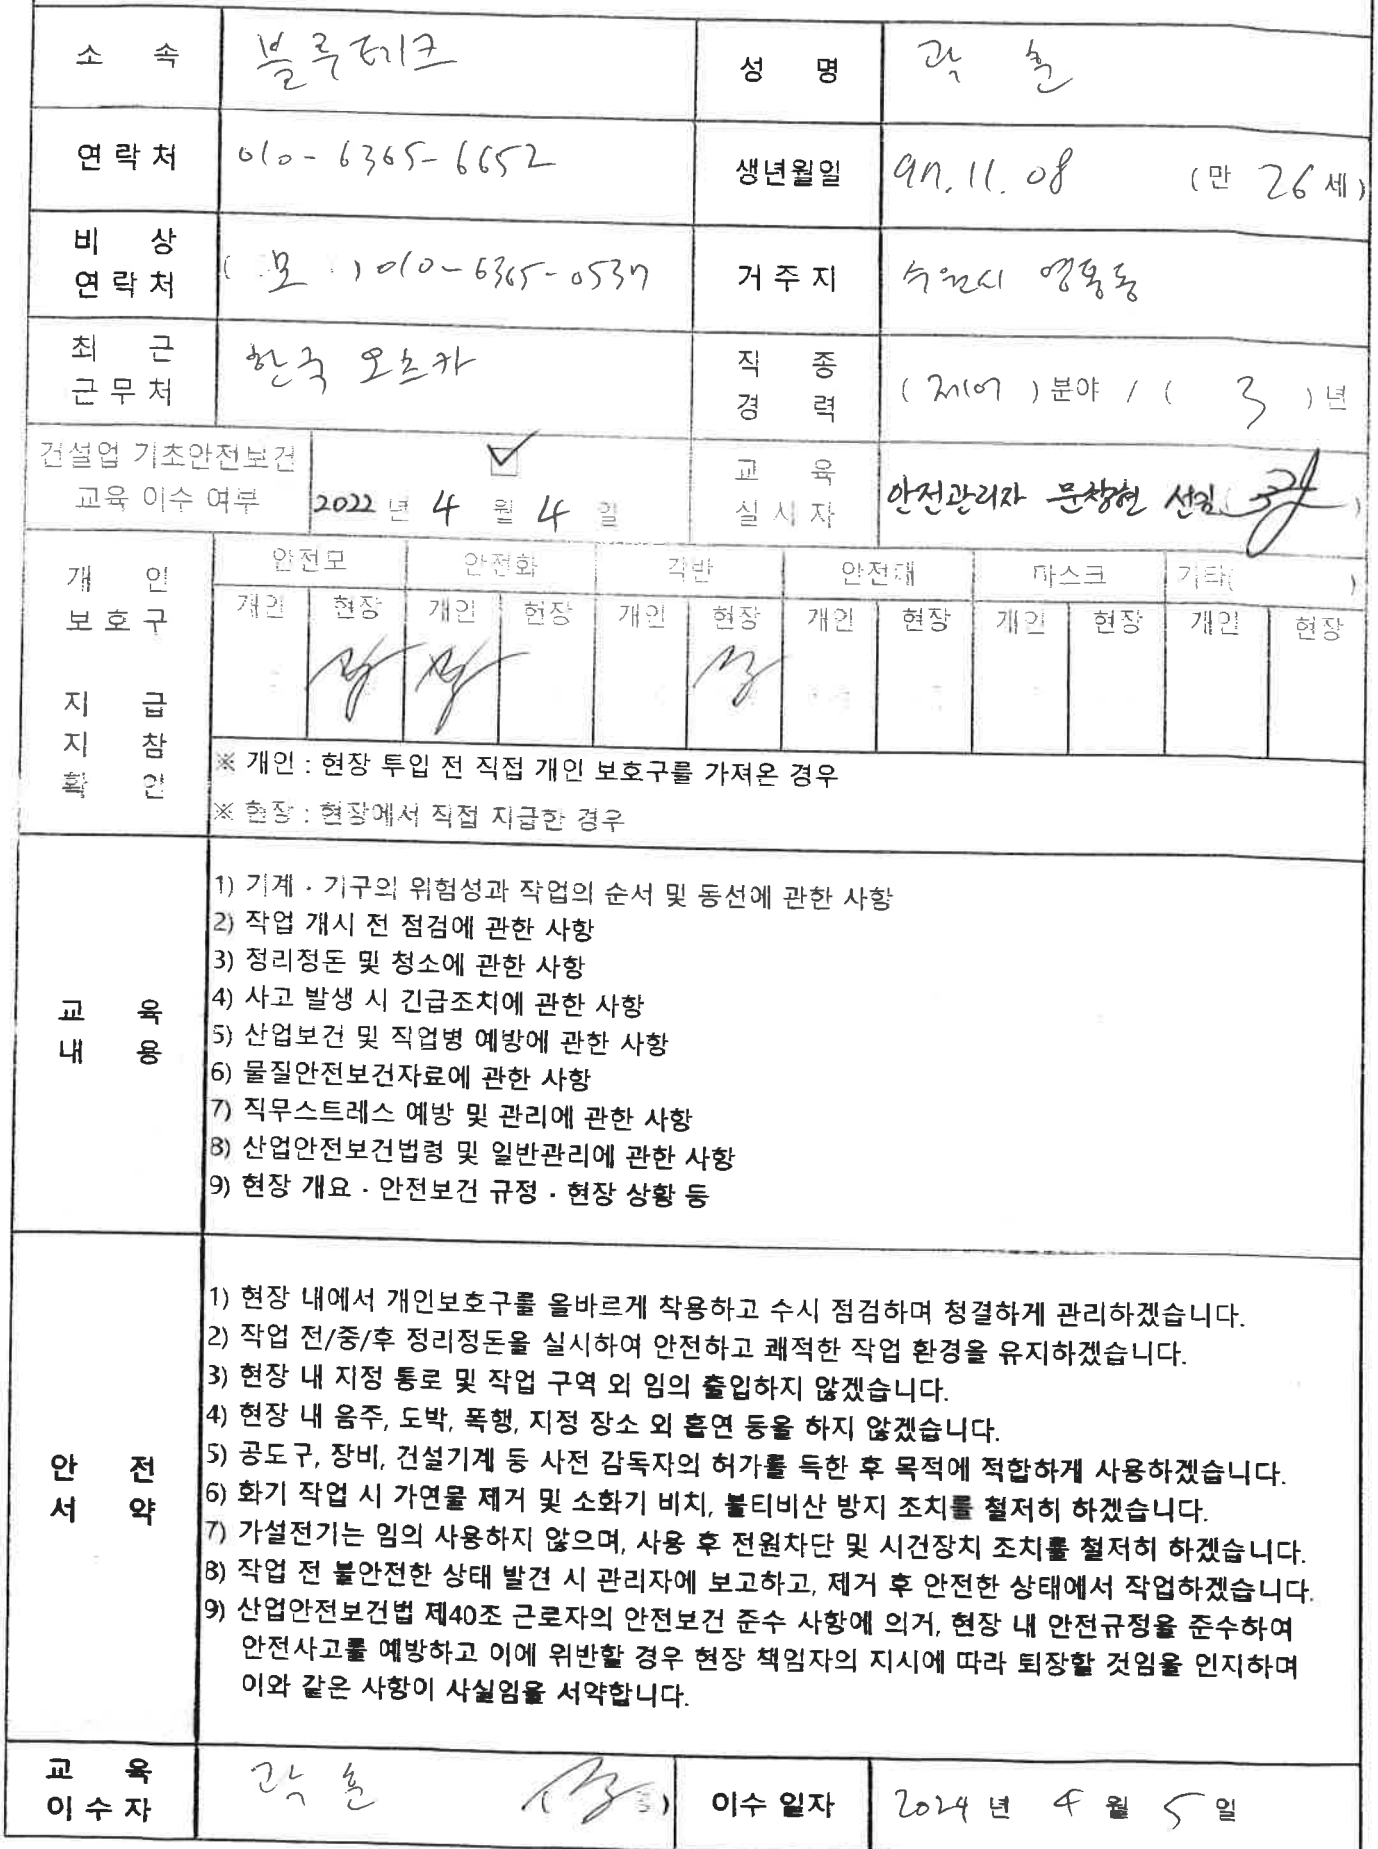 소 속 블루테크 성 명 곽 훈
연 락 처 010-6365-6652 생년월일 97.11.08 (만 26 세)
비 상
연 락 처 ( 모 ) 010-6365-0537 거 주 지 수원시 영통동
최 근
근 무 처 한국 오츠카 직 종
경 력 ( 제어 ) 분야 / ( 3 ) 년
건설업 기초안전보건
교육 이수 여부 2022 년 4 월 4 일 교 육
실 시 자 안전관리자 문창현
개 인
보 호 구
지 급
지 참
확 인
안전모 안전화 각반 안전대 마스크 기타( )
개인 현장 개인 현장 개인 현장 개인 현장 개인 현장 개인 현장
※ 개인 : 현장 투입 전 직접 개인 보호구를 가져온 경우
※ 현장 : 현장에서 직접 지급한 경우
교 육
내 용
1) 기계 · 기구의 위험성과 작업의 순서 및 동선에 관한 사항
2) 작업 개시 전 점검에 관한 사항
3) 정리정돈 및 청소에 관한 사항
4) 사고 발생 시 긴급조치에 관한 사항
5) 산업보건 및 직업병 예방에 관한 사항
6) 물질안전보건자료에 관한 사항
7) 직무스트레스 예방 및 관리에 관한 사항
8) 산업안전보건법령 및 일반관리에 관한 사항
9) 현장 개요 · 안전보건 규정 · 현장 상황 등
안 전
서 약
1) 현장 내에서 개인보호구를 올바르게 착용하고 수시 점검하며 청결하게 관리하겠습니다.
2) 작업 전/중/후 정리정돈을 실시하여 안전하고 쾌적한 작업 환경을 유지하겠습니다.
3) 현장 내 지정 통로 및 작업 구역 외 임의 출입하지 않겠습니다.
4) 현장 내 음주, 도박, 폭행, 지정 장소 외 흡연 등을 하지 않겠습니다.
5) 공도구, 장비, 건설기계 등 사전 감독자의 허가를 득한 후 목적에 적합하게 사용하겠습니다.
6) 화기 작업 시 가연물 제거 및 소화기 비치, 불티비산 방지 조치를 철저히 하겠습니다.
7) 가설전기는 임의 사용하지 않으며, 사용 후 전원차단 및 시건장치 조치를 철저히 하겠습니다.
8) 작업 전 불안전한 상태 발견 시 관리자에 보고하고, 제거 후 안전한 상태에서 작업하겠습니다.
9) 산업안전보건법 제40조 근로자의 안전보건 준수 사항에 의거, 현장 내 안전규정을 준수하여
안전사고를 예방하고 이에 위반할 경우 현장 책임자의 지시에 따라 퇴장할 것임을 인지하며
이와 같은 사항이 사실임을 서약합니다.
교 육
이 수 자 곽 훈 이수 일자 2024 년 4 월 5 일